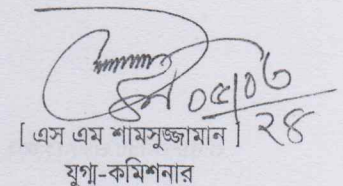 ০৫|০৬
২৪
[ এস এম শামসুজ্জামান ]
যুগ্ম-কমিশনার